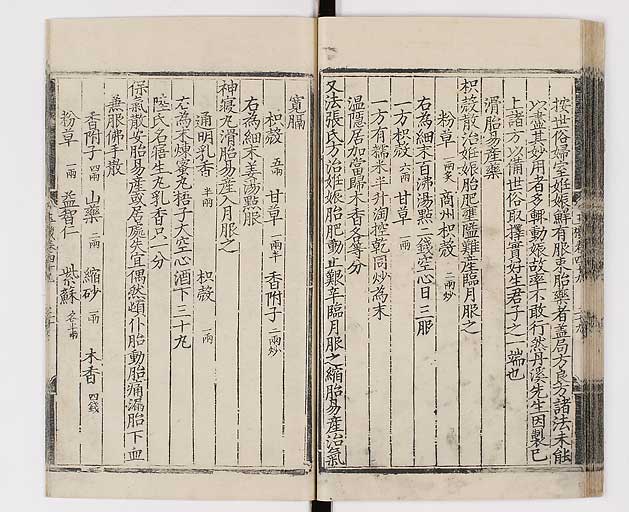 按世俗婦室妊娠鮮有服束胎藥者蓋局方良方諸法未能
以盡其妙用者多輒動娠故率不敢行然丹溪先生因製已
上諸方以涌世俗取擇實好生君子之一端也
滑胎易產藥
枳殼散治妊娠胎肥壅隘難產臨月服之
粉草 一兩炙 商州枳殼 二兩炒
右為細末百沸湯點二錢空心日三服
一方枳殼 六兩 甘草 一兩
一方有糯米半升淘控乾同炒為末
溫隱居加當歸木香各等分
又法張氏方治妊娠胎肥動止艱辛臨月服之縮胎易產治氣
寬膈
枳殼 五兩 甘草 一兩半 香附子 二兩炒
右為細末姜湯點服
神寢丸滑胎易產入月服之
通明乳香 半兩 枳殼 一兩
右為末煉蜜丸梧子大空心酒下三十丸
陸氏名寤生丸乳香只一分
保氣散安胎易產或居處失宜偶然頓仆胎動胎痛漏胎下血
兼服佛手散
香附子 四兩 山藥 二兩 縮砂 一兩 木香 四錢
粉草 一兩 益智仁 紫蘇 各半兩